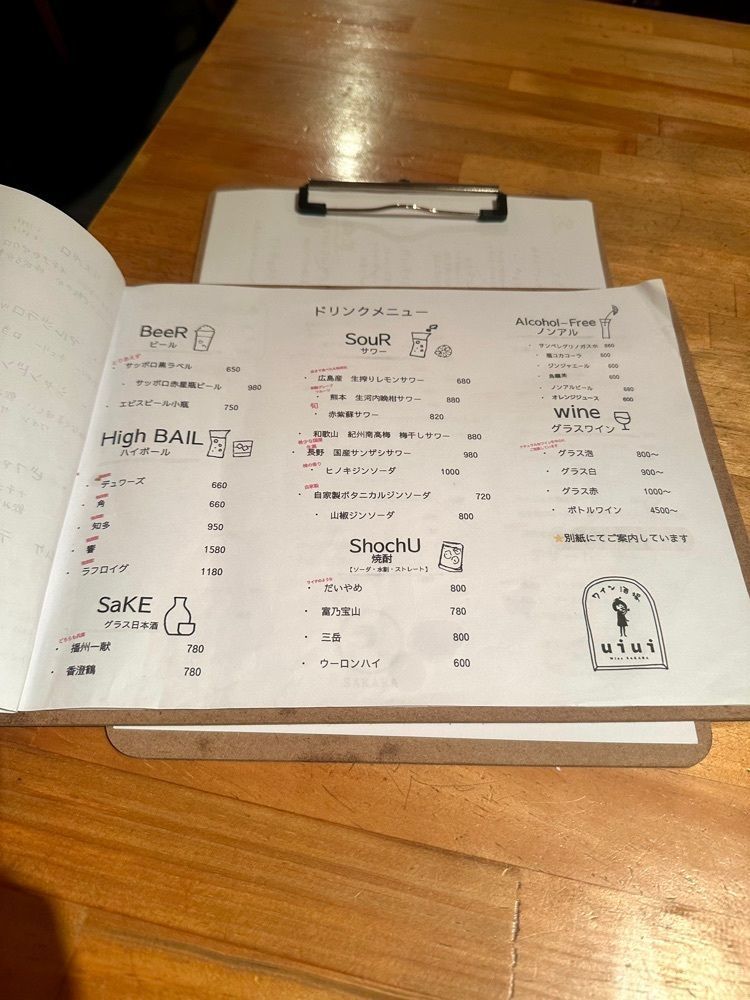 ドリンクメニュー
BeeR
ビール
とりあえず
サッポロ黒ラベル 650
サッポロ赤星瓶ビール 980
エビスビール小瓶 750
High BAIL
ハイボール
デュワーズ 660
角 660
知多 950
響 1580
ラフロイグ 1180
SaKE
グラス日本酒
どちらも兵庫
播州一献 780
香澄鶴 780
SouR
サワー
広島産 生搾りレモンサワー 680
熊本 生河内晩柑サワー 880
旬
赤紫蘇サワー 820
和歌山 紀州南高梅 梅干しサワー 880
希少な国産
長野 国産サンザシサワー 980
檜の香り
ヒノキジンソーダ 1000
自家製
自家製ボタニカルジンソーダ 720
山椒ジンソーダ 800
ShochU
焼酎
【ソーダ・水割・ストレート】
ライチのような
だいやめ 800
富乃宝山 780
三岳 800
ウーロンハイ 600
Alcohol-Free
ノンアル
サンペレグリノガスボ 660
瓶コカコーラ 600
ジンジャエール 600
烏龍茶 600
ノンアルビール 680
オレンジジュース 600
wine
グラスワイン
グラス泡 800～
グラス白 900～
グラス赤 1000～
ボトルワイン 4500～
⭐別紙にてご案内しています
ワイン酒場
uiui
Wine SAKABA